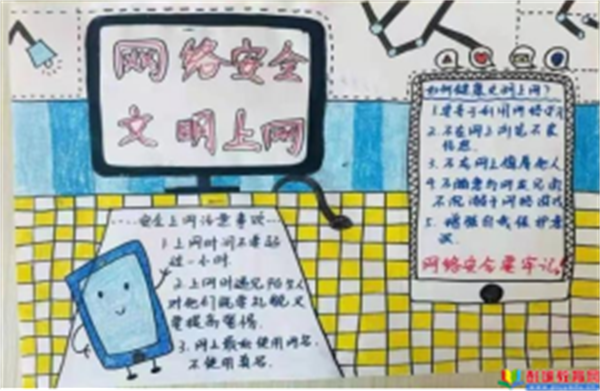 网络安全
文明上网
安全上网注意事项
1.上网时间不要超
过一小时.
2.上网时遇见陌生人
对他们既要礼貌又
要提高警惕.
3.网上最好使用网名.
不使用真名.
如何健康文明上网?
1.要善于利用网络学习
2.不在网上浏览不良
信息.
3.不在网上侮辱他人
4.不随意约网友见面
不沉溺于网络游戏
5.增强自我保护意
识.
网络安全要牢记!